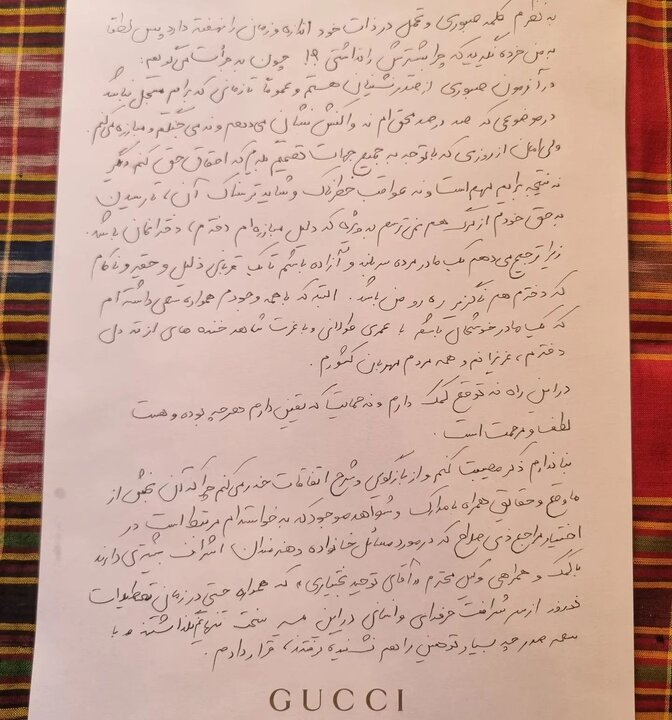 به نظرم کلمه صبوری و تحمل در ذات خود اندازه و زمان را نهفته دارد پس لطفا
به من خرده نگیرید که چرا بیشترش را نداشتی ؟! چون به جرأت می‌گویم:
در آزمون صبوری از صدر نشینان هستم و عموماً تا زمانی که برایم مسجل نباشد
در موضوعی که صد در صد محق ام نه واکنش نشان می‌دهم و نه می‌جنگم و مبارزه می‌کنم.
ولی امان از روزی که با توجه به جمیع جهات تصمیم بگیرم که احقاق حق کنم، دیگر
نه نتیجه برایم مهم است و نه عواقب خطرناک و شاید ترسناک آن، تا رسیدن
به حق خودم از مرگ هم نمی‌ترسم به ویژه که دلیل مبارزه‌ام دخترم، دخترانمان باشد.
زیرا ترجیح می‌دهم یک مادر مرده سربلند و آزاده باشم تا یک قربانی ذلیل و حقیر و ناکام
که دخترم هم ناگزیر ره رو من باشد. البته که با همه وجودم همواره سعی داشته ام
که یک مادر خوشحال باشم با عمری طولانی و با عزت شاهد خنده های از ته دل
دخترم، عزیزانم و همه مردم مهربان کشورم.
در این راه نه توقع کمک دارم و نه حمایت که یقین دارم هر چه بوده و هست
لطف و مرحمت است.
بنا ندارم ذکر مصیبت کنم و از بازگویی و شرح اتفاقات حذر می‌کنم چرا که آن بخش از
ماوقع و حقایق همراه با مدارک و شواهد موجود که به خواسته‌ام مرتبط است در
اختیار مراجع ذی صلاح که در مورد مسائل خانواده و هنرمندان اشراف بیشتری دارند
با کمک و همراهی وکیل محترم «آقای توحید بختیاری» که همواره حتی در زمان تعطیلات
نوروز از سر شرافت حرفه‌ای و انسانی در این مسیر سخت تنهایم نگذاشتند و با
سعه صدر چه بسیار توهینی را هم نشنیده گرفتند، قرار دادم.
GUCCI